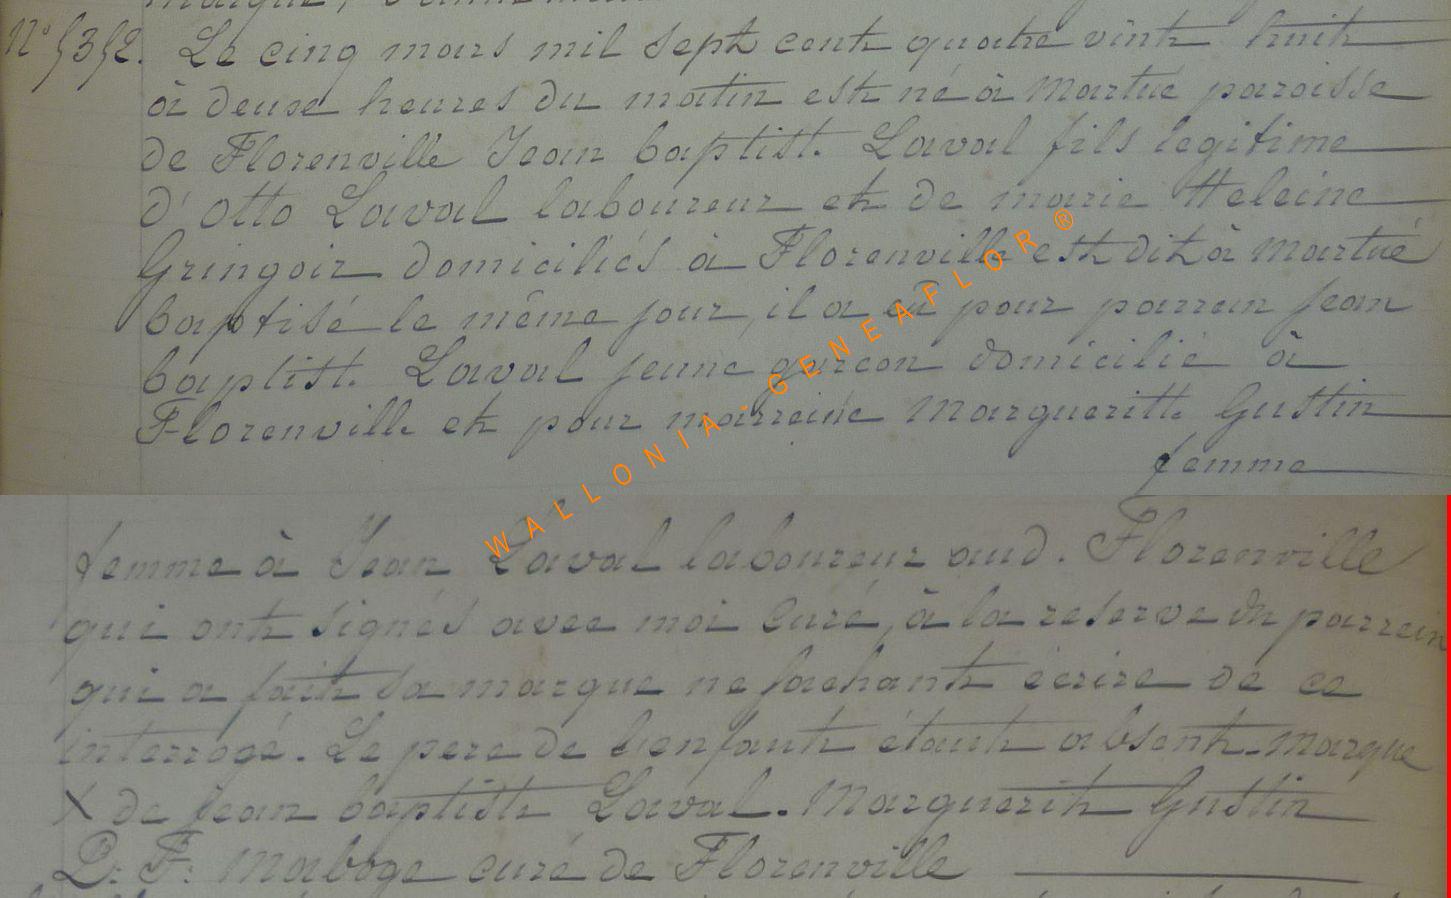 N° 5352. Le cinq mars mil sept cent quatre vint huit
à deuse heures du matin est né à Martué paroisse
de Florenville Jean baptist. Laval fils legitime
d'Otto Laval laboureur et de marie Heleine
Gringoir domiciliés à Florenville est dit à Martué
baptisé le même jour, il a eû pour parrein jean
baptist. Laval jeune garcon domicilié à
Florenville et pour marreine Margueritte Gustin
femme
femme à Jean Laval laboureur aud. Florenville
qui ont signés avec moi Curé, à la reserve du parrein
qui a fait sa marque ne sachant écrire de ce
interrogé. Le pere de l'enfant étant absent. Marque
X de jean baptiste Laval. Marguerite Gustin
P: F: Maboge curé de Florenville
WALLONIA - GENEAFLOR ®